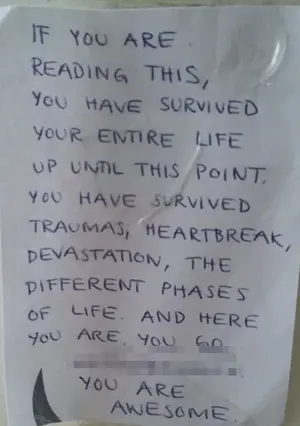 IF YOU ARE
READING THIS,
YOU HAVE SURVIVED
YOUR ENTIRE LIFE
UP UNTIL THIS POINT.
YOU HAVE SURVIVED
TRAUMAS, HEARTBREAK,
DEVASTATION, THE
DIFFERENT PHASES
OF LIFE. AND HERE
YOU ARE. YOU GO
YOU ARE
AWESOME.